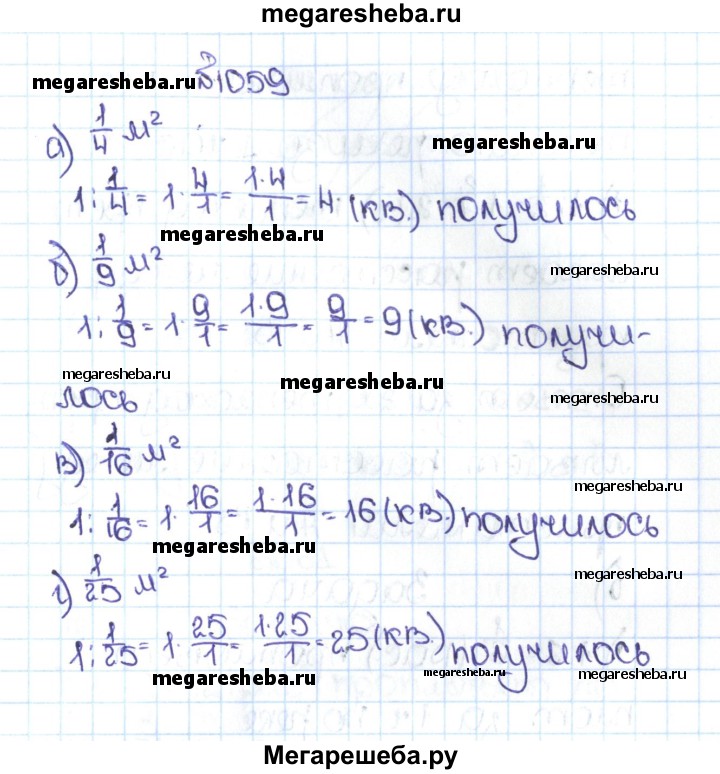 megaresheba.ru
megaresheba.ru №1059
а) 1/4 м² megaresheba.ru
1 : 1/4 = 1 · 4/1 = 1·4/1 = 4 · (кв.) получилось
megaresheba.ru
б) 1/9 м² megaresheba.ru
1 : 1/9 = 1 · 9/1 = 1·9/1 = 9/1 = 9 (кв.) получи-
megaresheba.ru megaresheba.ru megaresheba.ru
лось
в) 1/16 м²
megaresheba.ru
1 : 1/16 = 1 · 16/1 = 1·16/1 = 16 (кв.) получилось
megaresheba.ru
г) 1/25 м² megaresheba.ru
1 : 1/25 = 1 · 25/1 = 1·25/1 = 25 (кв.) получилось
megaresheba.ru megaresheba.ru megaresheba.ru
Мегарешеба.ру